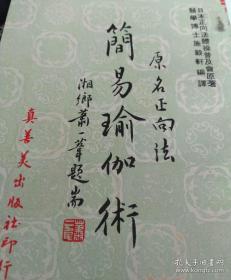 日本正向法體操普及會原著
醫學博士施毅軒編譯
原名正向法
簡易瑜伽術
湘鄉蕭一葦題耑
真善美出版社印行